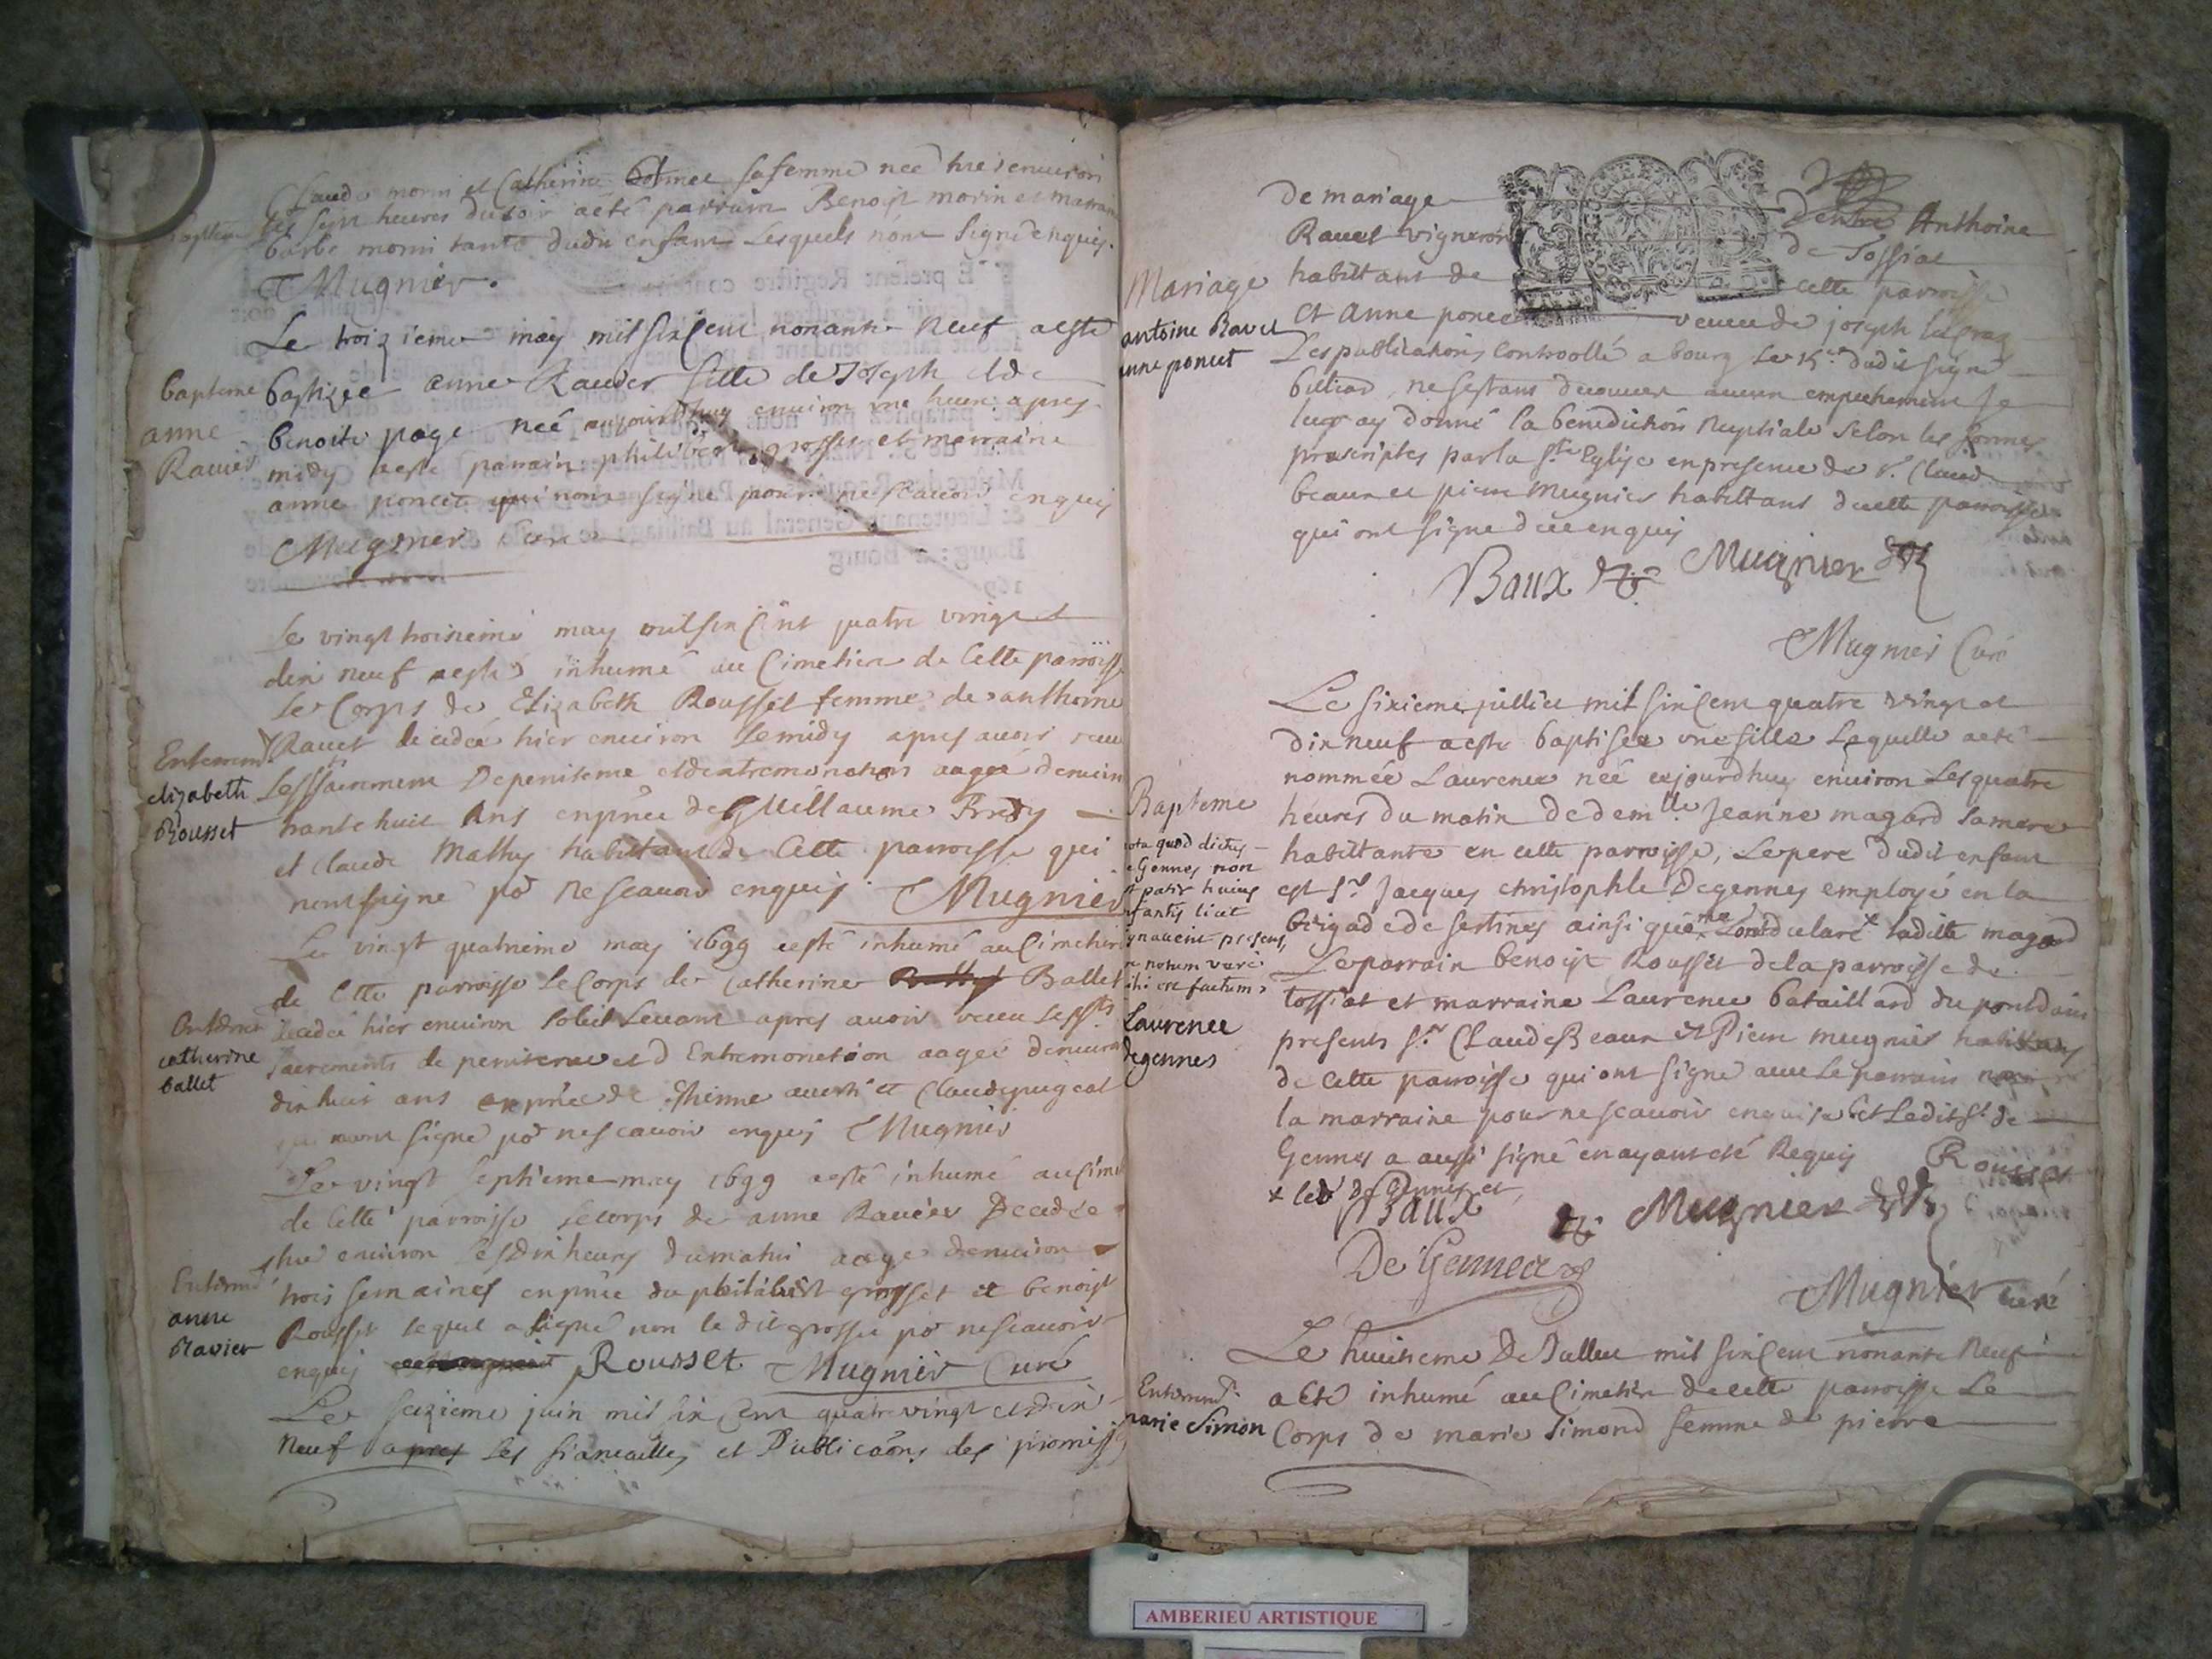 Claude morin et Catherine sa femme née hier environ
les sept heures du soir a été parrain Benoist morin et marraine
barbe morin tante dudit enfant Lesquels n'ont signé enquis.
Mugnier.
Le troizieme may mil six Cent nonante neuf a esté
Bapteme
anne
Ravier
baptizée anne Ravier fille de Joseph et de
benoite page née aujourdhuy environ une heure apres
midy a esté parrain philibert grosset et marraine
anne poncet qui n'ont signé pour ne scavoir enquis
Mugnier Curé
Le vingt troisieme may mil six Cent quatre vingt et
dix neuf a esté inhumé au Cimetiere de Cette parroisse
Le Corps de Elizabeth Rousset femme de anthoine
Enterremt
elizabeth
Rousset
Ravet decedée hier environ le midy apres avoir receu
les Sacrements De penitence et dextremonction aagée denviron
trante huit Ans enpñce de Guillaume Predy
et Claude Mathy habittans de Cette parroisse qui
nont signé po' ne scavoir enquis Mugnier
Le vingt quatrieme may 1699 a esté inhumé au Cimetiere
de Cette parroisse Le Corps de Catherine Ballet
catherine
ballet
decedée hier environ soleil Levant apres avoir receu Les sts
sacrements de penitence et d Extremonction aagée denviron
dix huit ans enpñce de Ethienne et Claude pugeat
qui nont signé po' ne scavoir enquis Mugnier
Le vingt septieme may 1699 a esté inhumé au Cime
de Cette parroisse le corps de anne Ravier Decedée
anne
Ravier
hier environ les dix heures du matin aagé denviron
trois semaines enpñce du philibert grosset et benoist
Rousset lequel a signé non le dit grosset po' ne scavoir
enquis Rousset Mugnier Curé
Le seizieme juin mil six Cent quatre vingt et dix
neuf apres les fiancailles et Publicaõns des promisses
de mariage Dentre Anthoine
Ravet vigneron de Tossiat
habittant de cette parroisse
Mariage
antoine Ravet
anne poncet
et Anne poncet veuve de joseph
Les publications Controollé a bourg le 15e dudit signé
billiard, ne sestant decouver aucun empechement Je
leur ay donné la bénédiction Nuptiale selon les formes
prescriptes par la Ste Eglise en presence de Sr. Claude
beaux et pierre Mugnier habittans de cette parroisse
qui ont signé de ce enquis
Baux Mugnier
Mugnier Curé
Le sixieme juillet mil six Cent quatre vingt et
dix neuf a esté baptisée une fille Laquelle a eté
nommée Laurence née aujourdhuy environ Les quatre
Bapteme
nota quod dictus
de Gennes non
est pater huius
infantis licet
heures du matin de demlle Jeanne magard sa mere
habittante en cette parroisse, Le pere dudit enfant
est Sr Jacques christophle Degennes employé en la
brigade de sertines ainsi que me l'ont declaré ladite magard
Le parrain benoist Rousset de la parroisse de
tossiat et marraine Laurence bataillard du pontdain
Laurence
degennes
presents Sr. Claude Beaux et Pierre mugnier habittans
de cette parroisse qui ont signé avec Le parrain non
la marraine pour ne scavoir enquise et Ledit Sr de
Gennes a aussi signé en ayant eté Requis Rousset
x led' De Gennes et
Baux Mugnier
De Gennes
Mugnier curé
Le huitieme De Juillet mil six Cent nonante Neuf
Enterremt.
marie Simon
a eté inhumé au Cimetiere de cette parroisse Le
Corps de marie Simond femme de pierre
AMBERIEU ARTISTIQUE